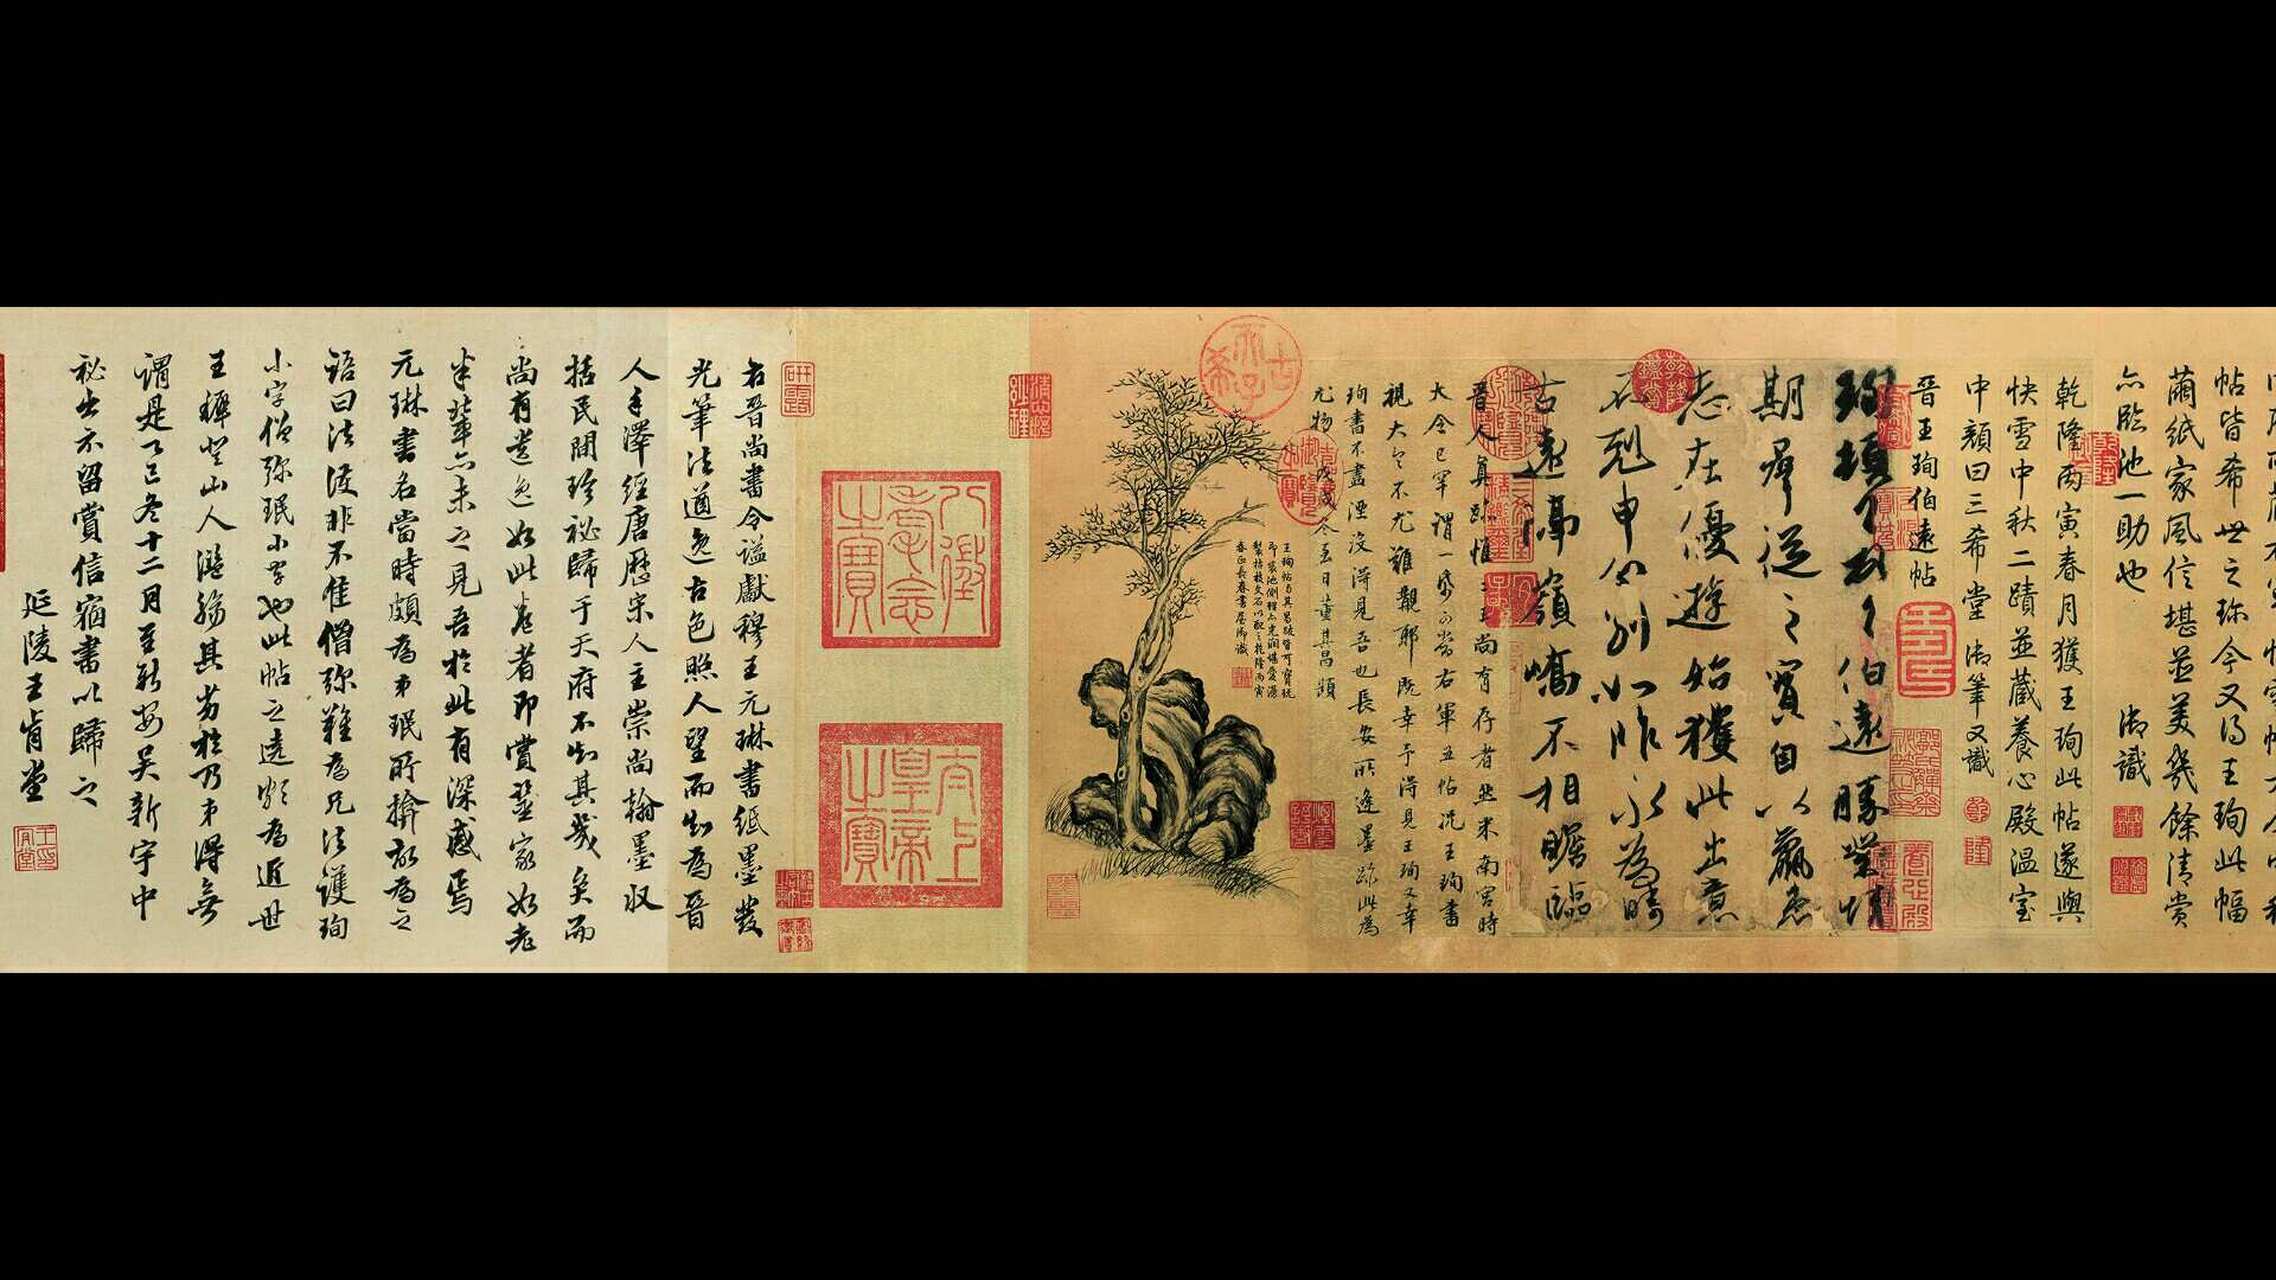 帖皆希世之珍今又得王珣此幅
繭紙家風信堪並美幾餘清賞
亦臨池一助也 御識
乾隆丙寅春月獲王珣此帖遂與
快雪中秋二蹟並藏養心殿溫室
中顏曰三希堂 御筆又識
晉王珣伯遠帖
珣頓首頓首伯遠勝業情
期群從之寶自以羸患
志在優遊始獲此出意
不剋申分別如昨永為疇
古遠隔嶺嶠不相瞻臨
晉人真跡惟二王尚有存者然米南宮時
大令已罕謂一紙可當右軍五帖況王珣書
視大令不尤難覯耶既幸予得見王珣又幸
珣書不盡湮沒得見吾也長安所逢墨跡此為
尤物 戊戌冬至日董其昌題
王珣帖與其昌跋皆可寶玩
即裝池側理亦光潤堪愛漫
製枯枝文石以配之乾隆丙寅
春正長春書屋御識
古希天子
八徵耄念之寶
太上皇帝之寶
研露
右晉尚書令諡獻穆王元琳書紙墨發
光筆法遒逸古色照人望而知為晉
人手澤經唐歷宋人主崇尚翰墨收
括民間珍秘歸于天府不知其幾矣而
尚有遺逸如此卷者即賞鑒家如老
米輩亦未之見吾於此有深感焉
元琳書名當時頗為弟珉所擠故為之
語曰法護非不佳僧彌難為兄法護珣
小字僧彌珉小字也此帖之遶頗為近世
王穉登山人濫觴其劣於乃弟得無
謂是乙巳冬十二月至新安吳新宇中
秘出示留賞信宿書以歸之
延陵王肯堂